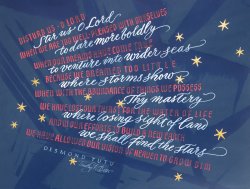 DISTURB US, O LORD
Stir us O Lord
WHEN WE ARE TOO WELL PLEASED WITH OURSELVES
to dare more boldly
WHEN OUR DREAMS HAVE COME TRUE
to venture into wider seas
BECAUSE WE DREAMED TOO LITTLE
where storms show
WITH THE ABUNDANCE OF THINGS WE POSSESS
Thy mastery
WE HAVE LOST OUR THIRST FOR THE WATER OF LIFE
where losing sight of land
AND IN OUR EFFORTS TO BUILD A NEW EARTH
we shall find the stars
WE HAVE ALLOWED OUR VISION OF HEAVEN TO GROW DIM
DESMOND TUTU